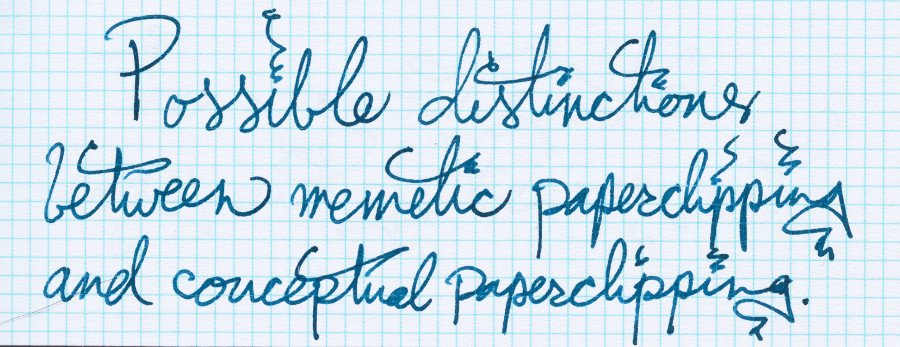 Possible distinctions
between memetic paperclipping
and conceptual paperclipping.